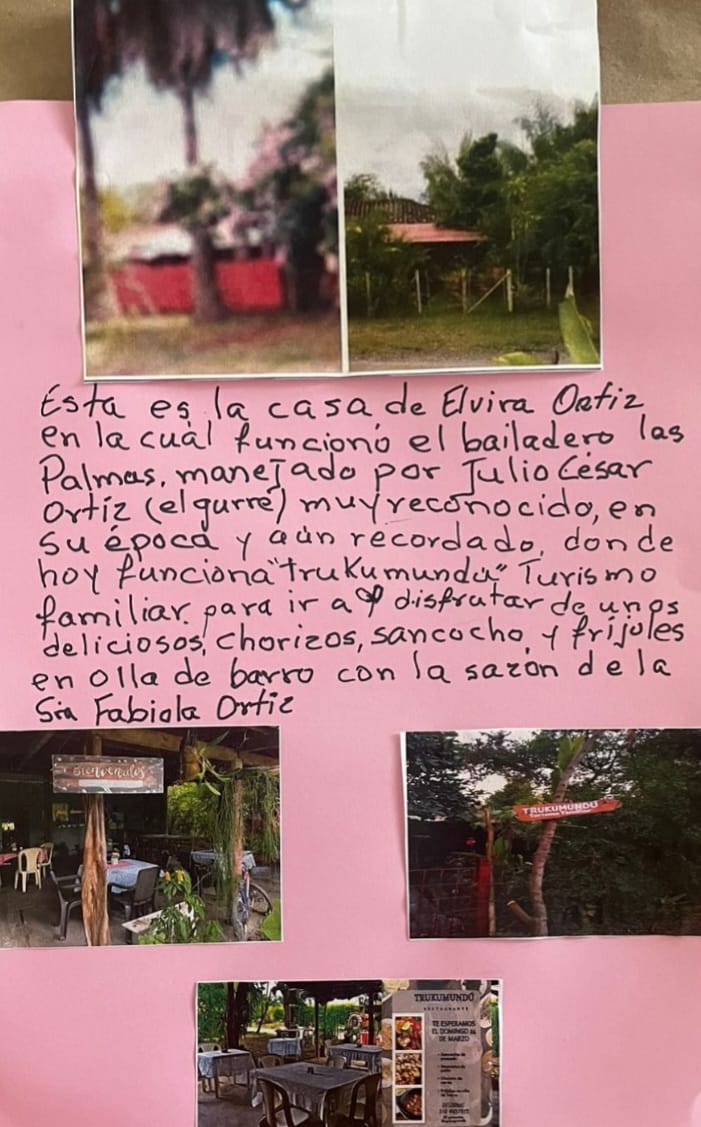 Esta es la casa de Elvira Ortiz
en la cual funcionó el bailadero las
Palmas, manejado por Julio César
Ortíz (el gurre) muy reconocido, en
su época y aún recordado, donde
hoy funciona "trukumundú" Turismo
familiar. para ir a disfrutar de unos
deliciosos, chorizos, sancocho, y frijoles
en olla de barro con la sazón de la
Sra Fabiola Ortiz
Bienvenidos
TRUKUMUNDÚ
Turismo Familiar
TRUKUMUNDÚ
RESTAURANTE
TE ESPERAMOS
EL DOMINGO
DE MARZO